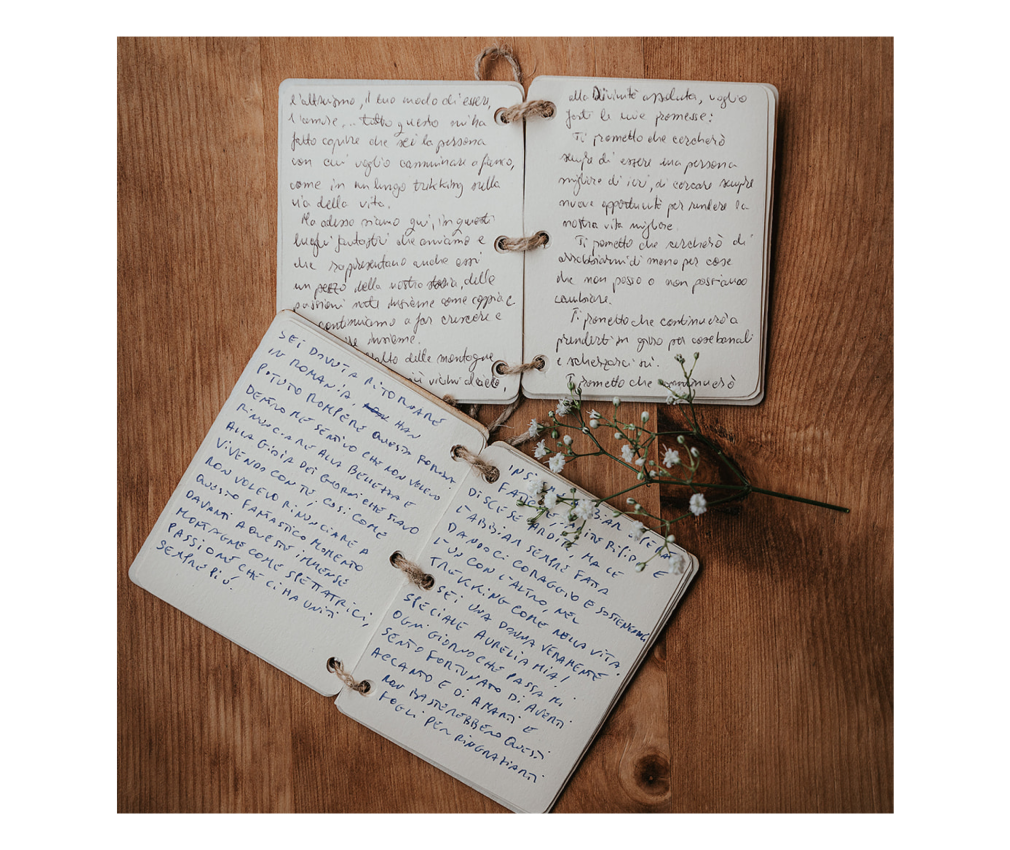 l'altruismo, il tuo modo di essere,
l'amore,... tutto questo mi ha
fatto capire che sei la persona
con cui voglio camminare a fianco,
come in un lungo trekking sulla
via della vita.
Ma adesso siamo qui, in questi
luoghi fantastici che amiamo e
che rappresentano anche essi
un pezzo della nostra storia, delle
passioni nate insieme come coppia e
continuiamo a far crescere e
insieme.
alto delle montagne
più vicini al cielo,
alla Divinità assoluta, voglio
farti le mie promesse:
Ti prometto che cercherò
sempre di essere una persona
migliore di ieri, di cercare sempre
nuove opportunità per rendere la
nostra vita migliore.
Ti prometto che cercherò di
arrabbiarmi di meno per cose
che non posso o non possiamo
cambiare.
Ti prometto che continuerò a
prenderti in giro per cose banali
e scherzarci su.
Ti prometto che continuerò
SEI DOVUTA RITORNARE
IN ROMANIA, HAN
POTUTO ROMPERE QUESTO
DENTRO ME SENTIVO CHE NON VOLEVO
RINUNCIARE ALLA BELLEZZA E
ALLA GIOIA DEI GIORNI CHE STAVO
VIVENDO CON TE, COSÌ COME
NON VOLEVO RINUNCIARE A
QUESTO FANTASTICO MOMENTO
DAVANTI A QUESTE IMMENSE
MONTAGNE COME SPETTATRICI,
PASSIONE CHE CI HA UNITI
SEMPRE PIÙ!
FATTO
DISCESE ARDUE, MA CE
L'ABBIAM SEMPRE FATTA
DANDOCI CORAGGIO E SOSTENENDOCI
L'UN CON L'ALTRO, NEL
TREKKING COME NELLA VITA.
SEI UNA DONNA VERAMENTE
SPECIALE AURELIA MIA!
OGNI GIORNO CHE PASSA MI
SENTO FORTUNATO DI AVERTI
ACCANTO E DI AMARTI E
NON BASTEREBBERO QUESTI
FOGLI PER RINGRAZIARTI